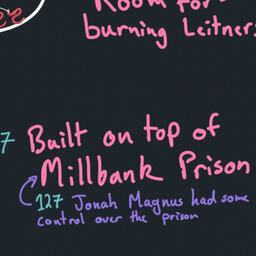 Room for
burning Leitners
7 Built on top of
Millbank Prison
127 Jonah Magnus had some
control over the prison